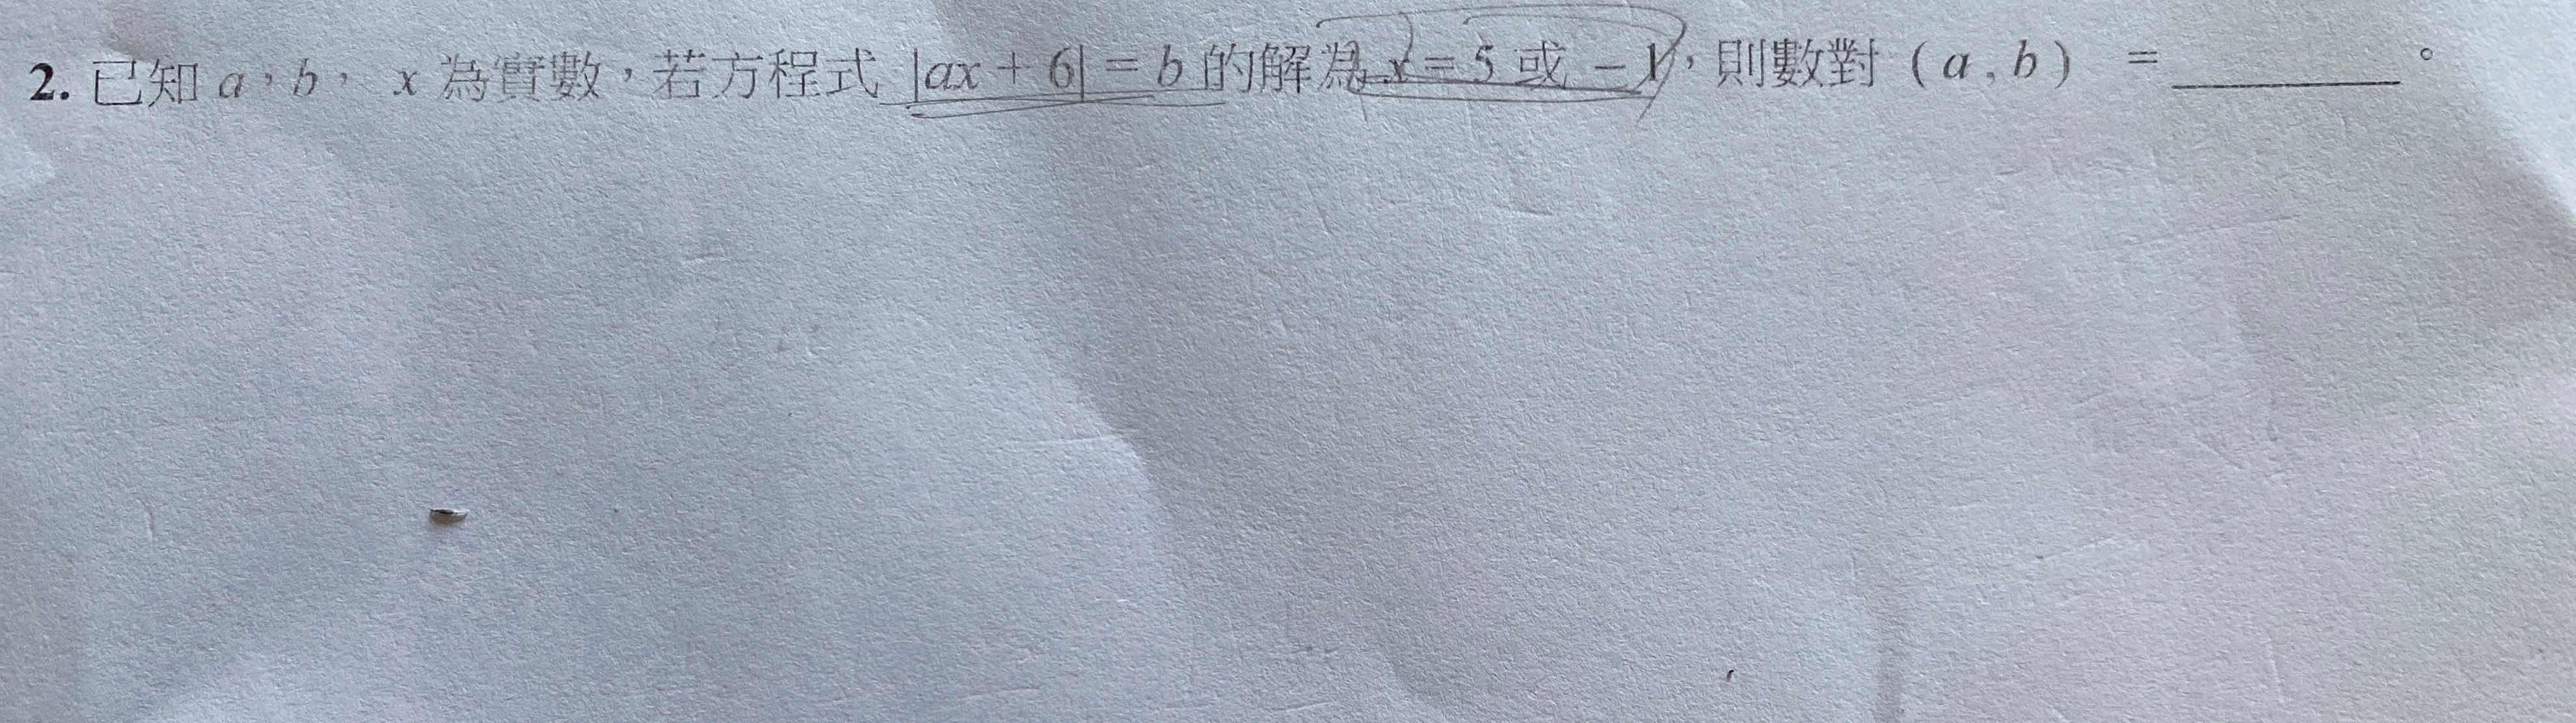 2. 已知 a，b， x 為實數，若方程式 |ax + 6| = b 的解為 x = 5 或 − 1，則數對 ( a , b ) = ________。